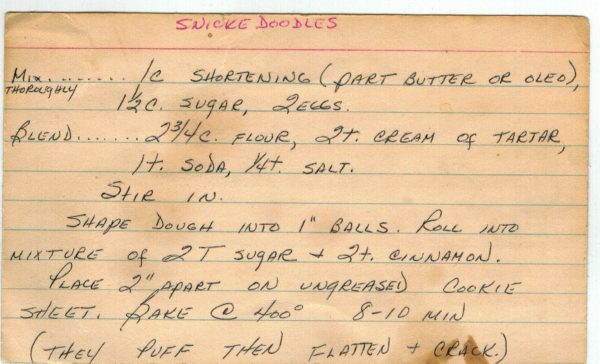 SNICKEDOODLES
MIX........ 1C SHORTENING (PART BUTTER OR OLEO),
THOROUGHLY
1½C. SUGAR, 2EGGS.
BLEND....... 2 3/4 C. FLOUR, 2t. CREAM OF TARTAR,
1t. SODA, ¼t. SALT.
STIR IN.
SHAPE DOUGH INTO 1" BALLS. ROLL INTO
MIXTURE OF 2T SUGAR + 2t. CINNAMON.
PLACE 2" APART ON UNGREASED COOKIE
SHEET. BAKE @ 400° 8-10 MIN
(THEY PUFF THEN FLATTEN + CRACK.)